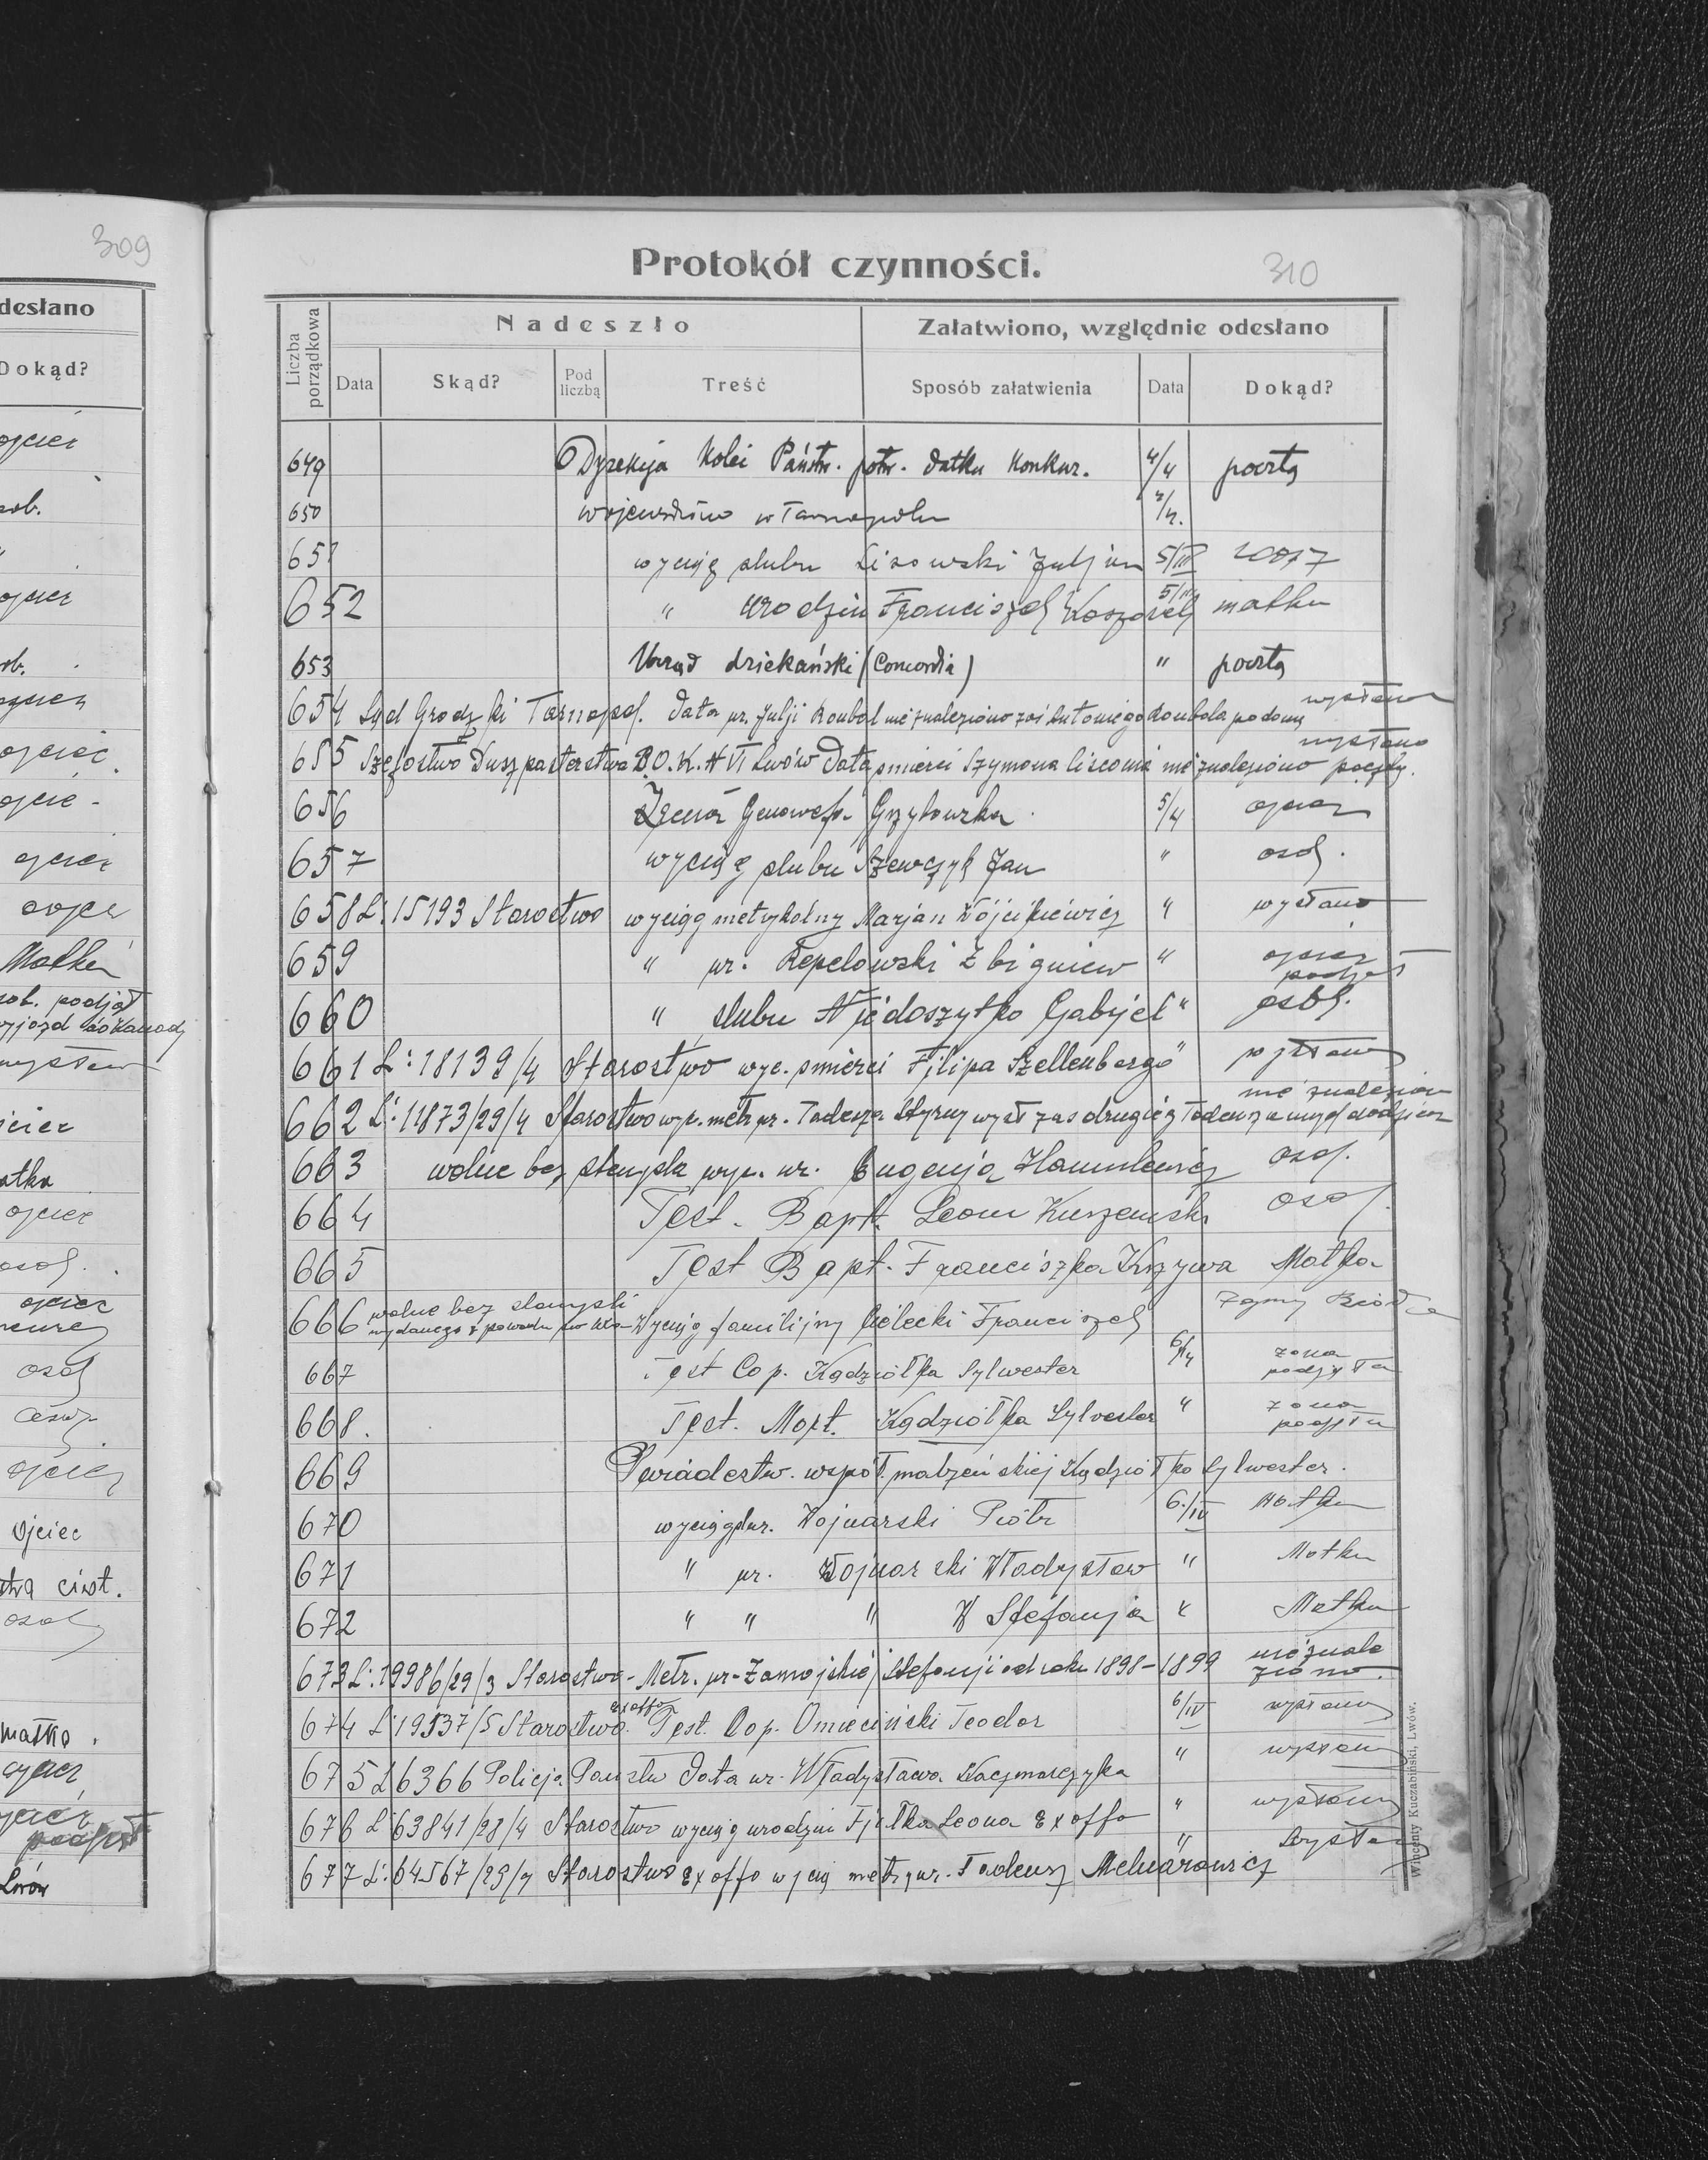 309
desłano
Dokąd?
ojciec
sob.
ojciec
ob.
ojciec
ojciec
ojciec
ojciec
Matka
sob. podjął
wyjazd do Kanady
wysłano
ojciec
atka
ojciec
osob.
ojciec
osob
ojciec
Ojciec
ciot.
osob
matka.
ojciec
ojciec
podjął
Lwów
Protokół czynności.
310
Liczba porządkowa
Nadeszło
Załatwiono, względnie odesłano
Data
Skąd?
Pod liczbą
Treść
Sposób załatwienia
Data
Dokąd?
649 Dyrekcja Kolei Państw. potw. datku konkur. 4/4 pocztą
650 województwo w Tarnopolu 4/4.
651 wyciąg ślubu Lisowski Juljan 5/III
652 " urodzin Franciszek Koszarek 5/III matka
653 Urząd dziekański (Concordia) " pocztą
654 Sąd Grodzki Tarnopol. Data ur. Julji Roubal nie znaleziono zaś Antoniego Roubala podano wysłano
655 Szefostwo Duszpasterstwa D.O.K. N VI Lwów Data śmierci Szymona Liscouia nie znaleziono wysłano pocztą.
656 Irena Genowefa Grzybowska 5/4 ojciec
657 wyciąg ślubu Szewczyk Jan " osob.
658 L: 15193 Starostwo wyciąg metrykalny Marjan Wójcikiewicz " wysłano
659 " ur. Repelowski Zbigniew " ojciec podjął
660 " ślubu Niedoszytko Gabrjel " osob.
661 L: 18139/4 Starostwo wyc. śmierci Filipa Szellenberga " wysłano
662 L: 11873/29/4 Starostwo wyc. metr. ur. Tadeusza Styrny wysł zaś drugiego Tadeusza nie znaleziono
663 wolne bez stempla wyc. ur. Eugenja Hamulewicz osob.
664 Test. Bapt. Leon Kurzemski osob.
665 Test Bapt. Franciszka Krzywa Matka
666 wolne bez stempli
wydane z powodu Wyciąg familijny Cielecki Franciszek
667 Test Cop. Kądziołka Sylwester 6/4 żona podjęta
668. Test. Mort. Kądziołka Sylvester " żona podjęta
669 Świadectw. współ. małżeńskiej Kądziołko Sylwester.
670 wyciąg ur. Wojnarski Piotr 6./IV Matka
671 " ur. Wojnarski Władysław " Matka
672 " " " W Stefanja " Matka
673 L: 19986/29/3 Starostwo - Metr. ur - Zamojskiej Stefanji od roku 1898-1899 nie znaleziono.
674 L: 19537/5 Starostwo. ex offo Test. Cop. Omieciński Teodor 6/IV wysłano
675 L 6366 Policja Państw Data ur. Władysława Kaczmarczyka " wysłano
676 L: 63841/28/4 Starostwo wyciąg urodzin Fijałka Leona Ex offo " wysłano
677 L: 64567/29/4 Starostwo Ex offo wyciąg metr. ur. Tadeusz Melnarowicz " Wysłano
Wincenty Kuczabiński, Lwów.